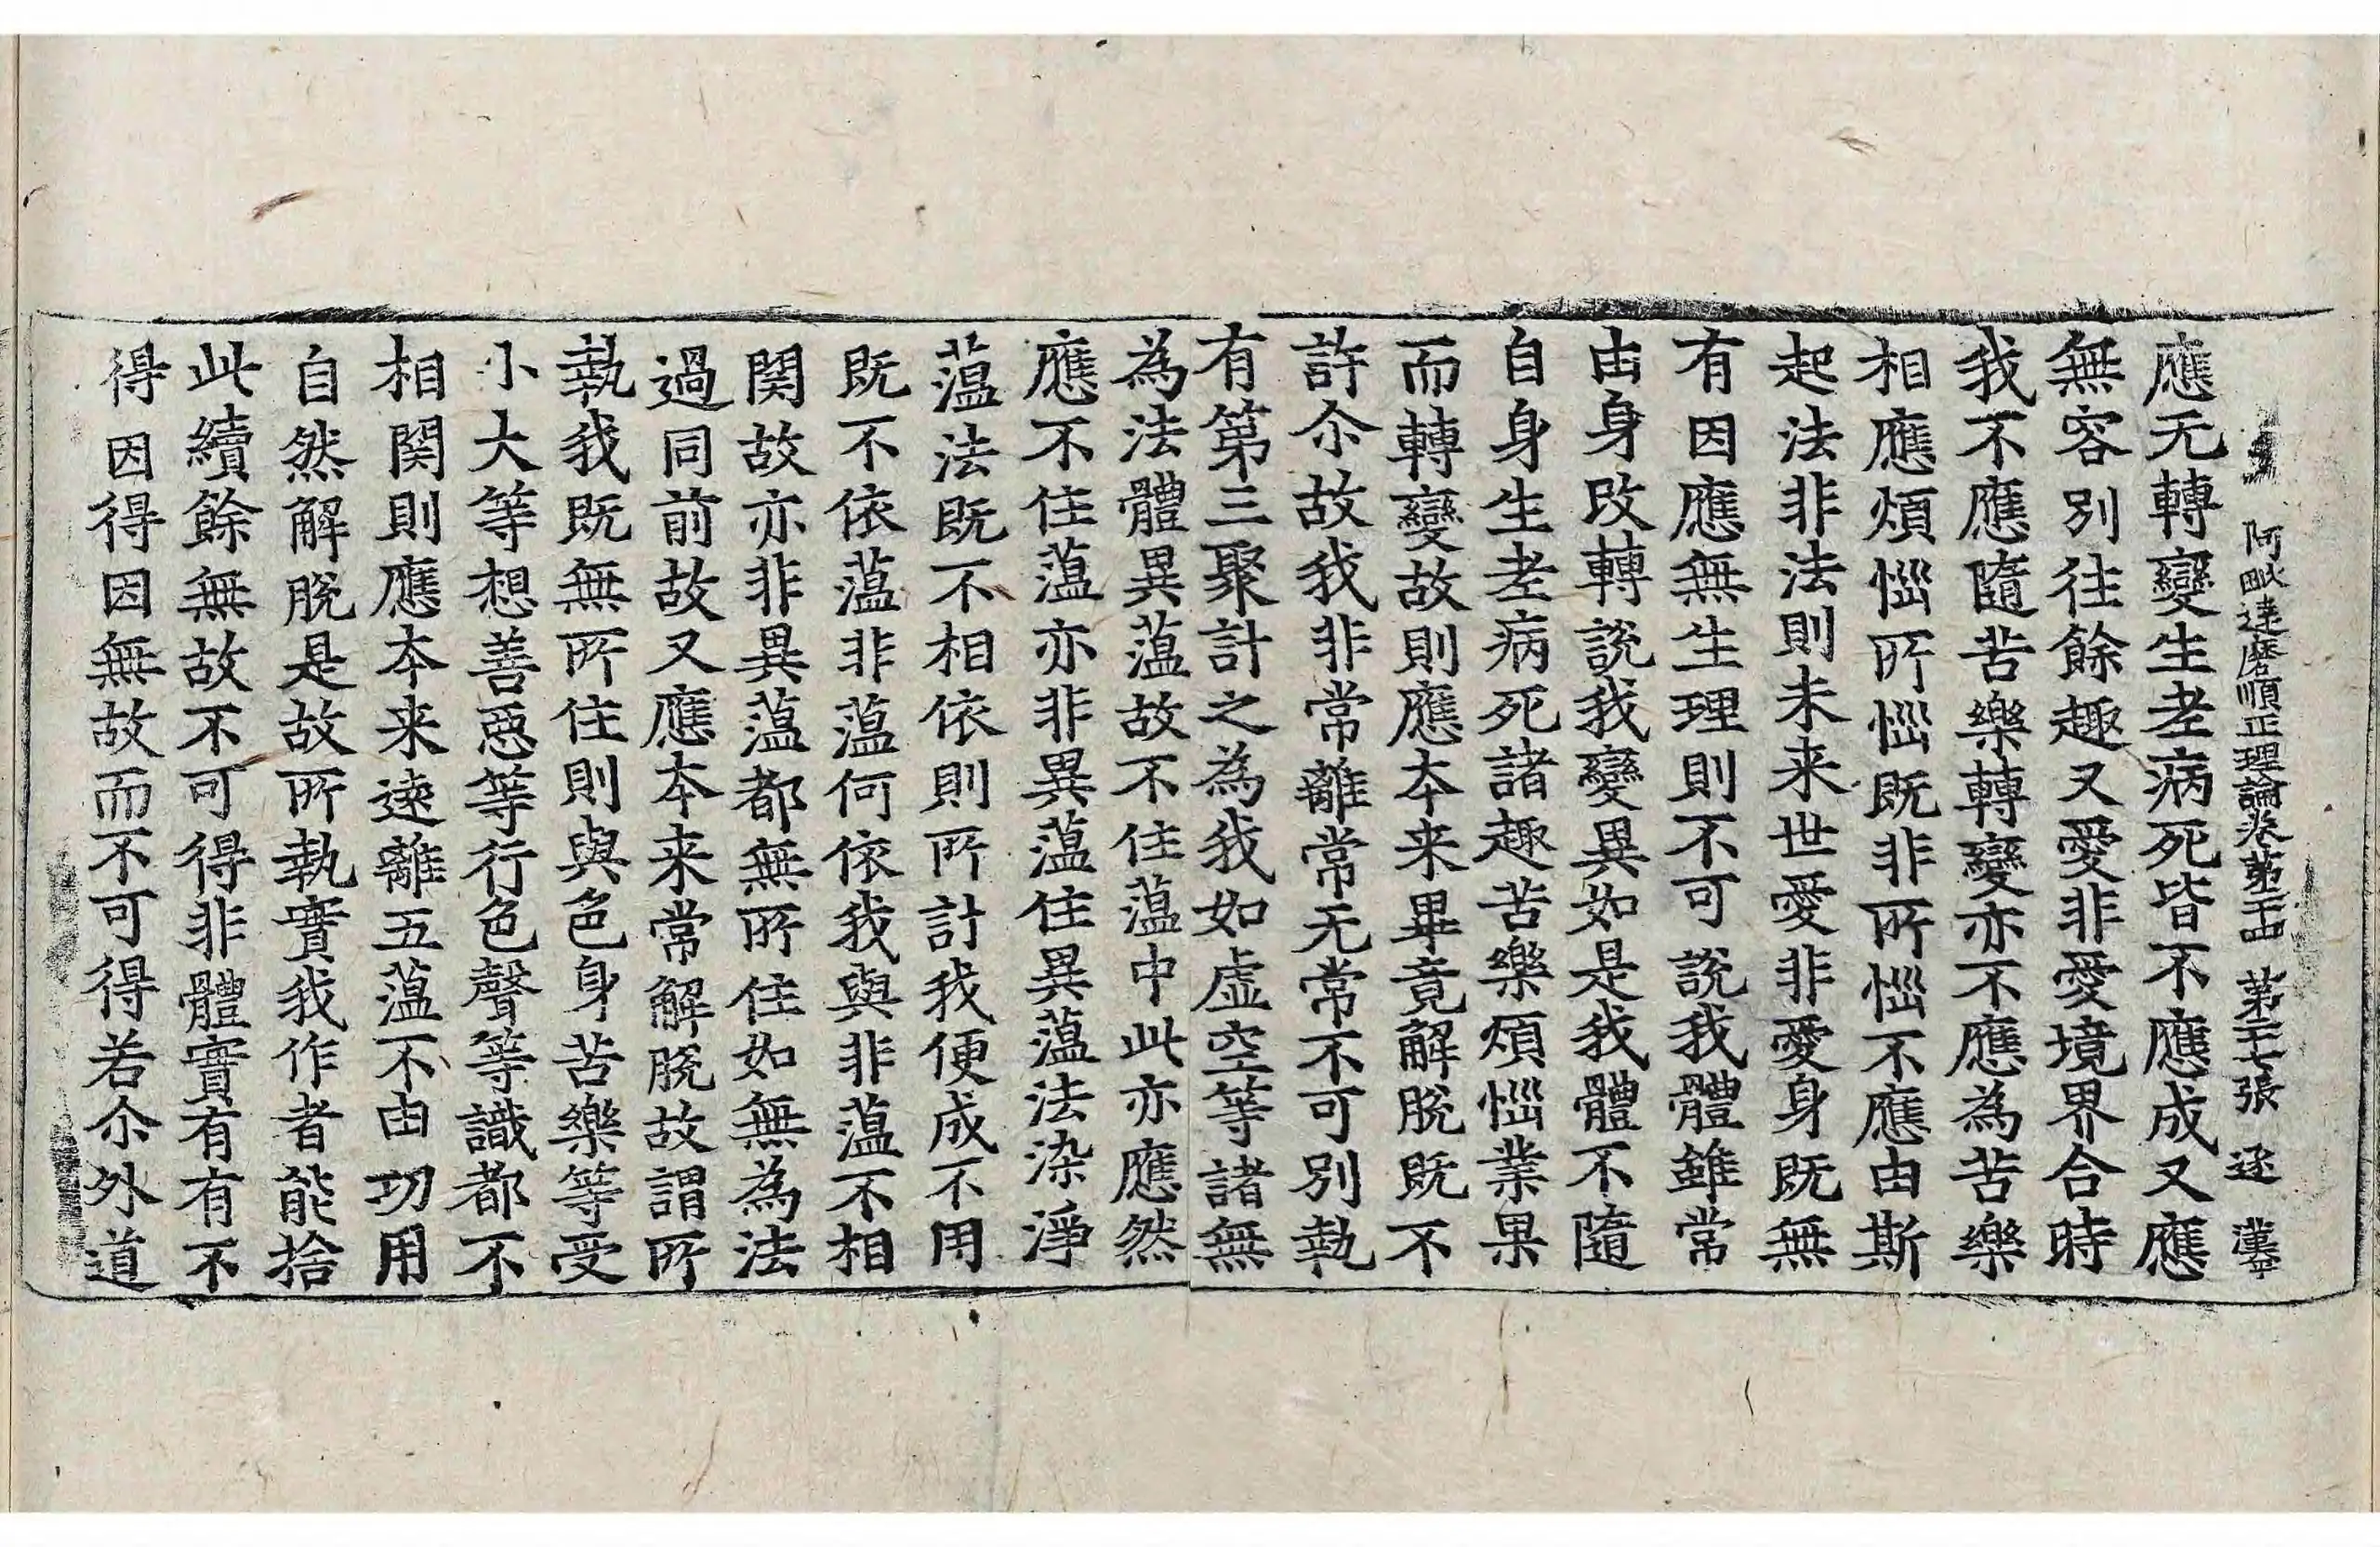 阿毗達磨順正理論卷第二十五　第二十七張　逐　漢寧
應无轉變生老病死皆不應成又應
無容別往餘趣又愛非愛境界合時
我不應隨苦樂轉變亦不應為苦樂
相應煩惱所惱既非所惱不應由斯
起法非法則未来世愛非愛身既無
有因應無生理則不可說我體雖常
由身改轉說我變異如是我體不隨
自身生老病死諸趣苦樂煩惱業果
而轉變故則應本来畢竟解脫既不
許尒故我非常離常无常不可別執
有第三聚計之為我如虛空等諸無
為法體異蕰故不住蕰中此亦應然
應不住蕰亦非異蕰住異蕰法染淨
蕰法既不相依則所計我便成不用
既不依蕰非蕰何依我與非蕰不相
関故亦非異蕰都無所住如無為法
過同前故又應本来常解脫故謂所
執我既無所住則與色身苦樂等受
小大等想善惡等行色聲等識都不
相関則應本来逺離五蕰不由功用
自然解脫是故所執實我作者能捨
此續餘無故不可得非體實有有不
得因得因無故而不可得若尒外道